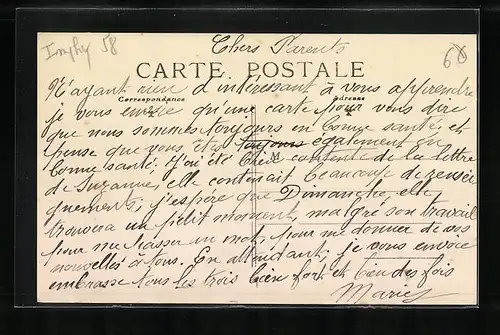 Imphy 58
Chers Parents
CARTE POSTALE
Correspondance
Adresse
N'ayant rien d'intéressant à vous apprendre
je vous envoie qu'une carte pour vous dire
que nous sommes toujours en bonne santé; et
pense que vous êtes toujours également en
bonne santé; J'ai été bien contente de la lettre
de Suzanne; elle contenait beaucoup de rensei
gnements; j'espère que Dimanche, elle
trouvera un petit moment, malgré son travail
pour me passer un mot; pour me donner de vos
nouvelles à tous. En attendant; je vous envoie
embrasse tous les trois bien fort et bien des fois
Marie